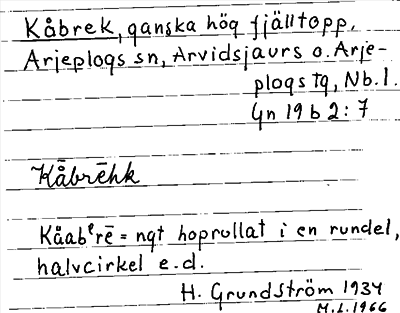 Kåbrek, ganska hög fjälltopp.
Arjeplogs sn, Arvidsjaurs o. Arje-
plogs tg, Nb. l.
Gn 19 b 2:7
Kā̊brēhk
Kåabᵉrē = ngt hoprullat i en rundel,
halvcirkel e.d.
H. Grundström 1934
M.L. 1966